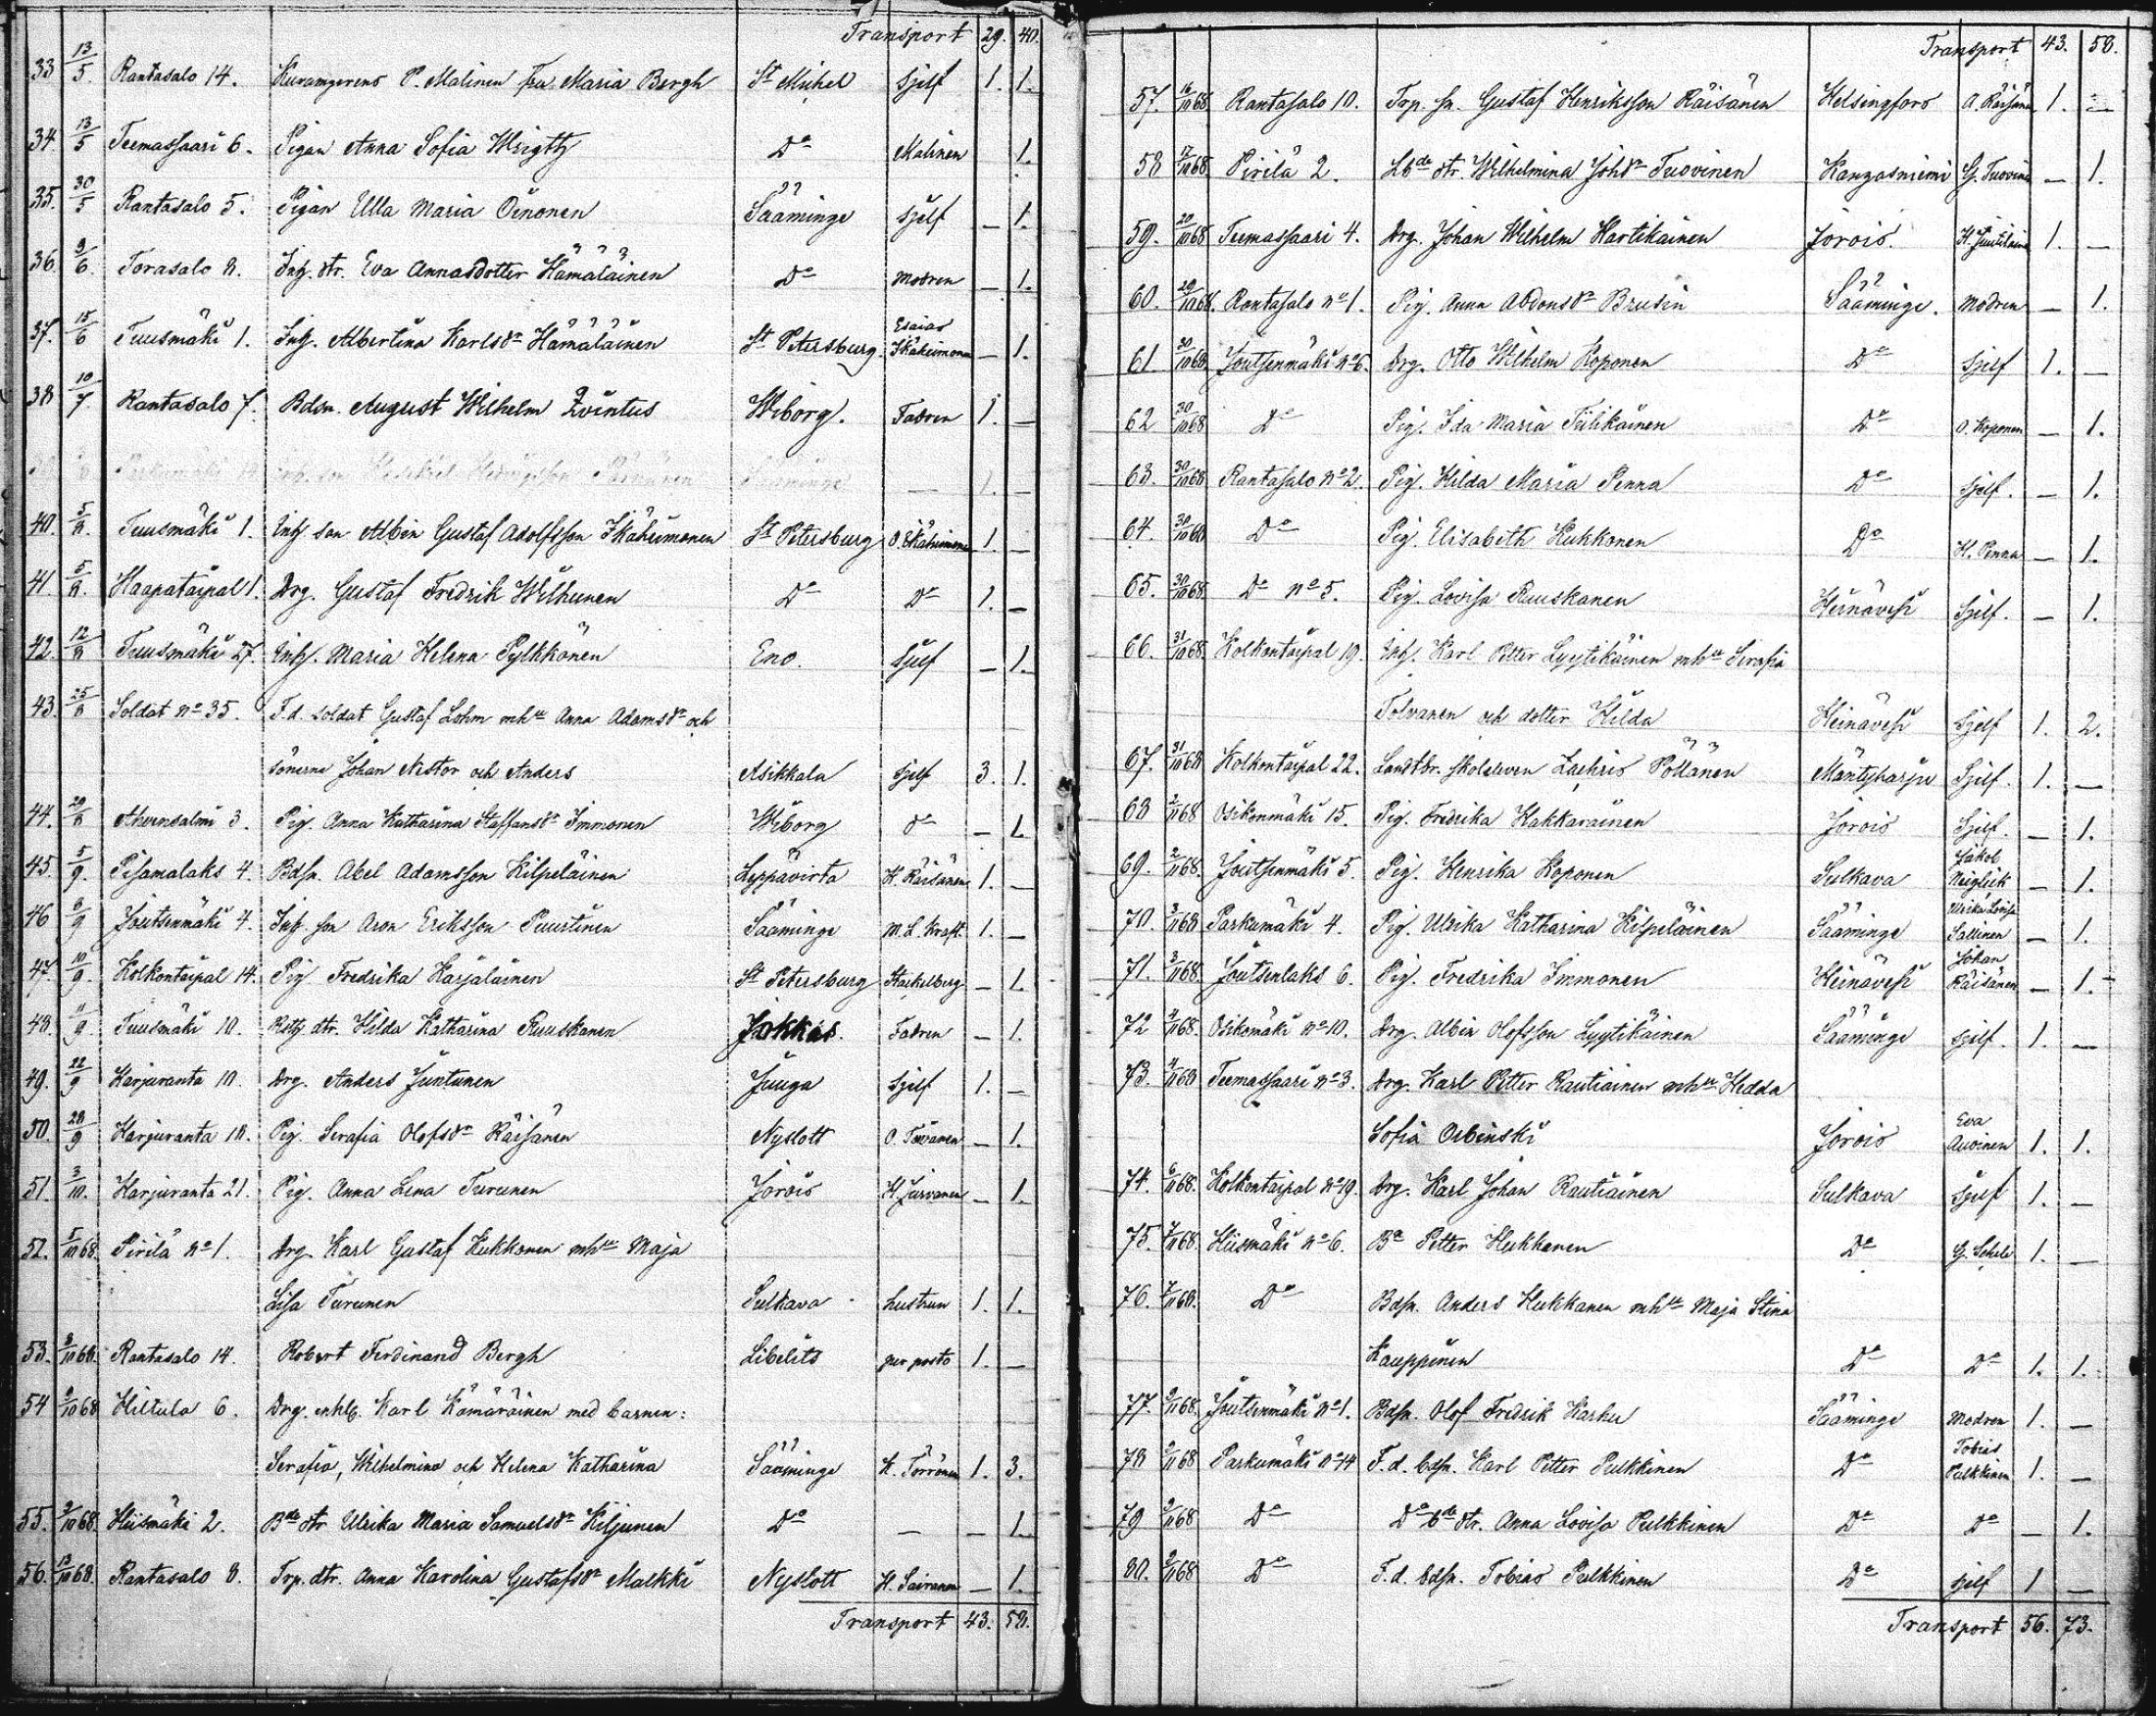 Transport 29. 40.
33 13/5. Rantasalo 14. P. Malinen fru Maria Bergh St Michel Sjelf 1. 1.
34. 13/5 Teemassaari 6. Pigan Anna Sofia Do Malinen 1.
35. 30/5 Rantasalo 5. Pigan Ulla Maria Oinonen Sääminge Sjelf — 1.
36. 9/6. Torasalo 8. Inh. dtr. Eva Annasdotter Hämäläinen Do Modren — 1.
Esaias
37. 15/6 Tuusmäki 1. Inh. Albertina Karlsdr Hämäläinen St Petersburg. Ikäheimonen — 1.
38 10/7. Rantasalo 7. Bdsn. August Wilhelm Qvintus Wiborg. Fadren 1. —
Parkumäki Sääminge — 1. —
40. 5/8. Tuusmäki 1. Inh son Albin Gustaf Adolfsson Ikäheimonen St Petersburg 1. —
41. 5/8. Haapataipal 1. Drg. Gustaf Fredrik Wilhunen Do Do 1. —
42. 12/8 Tuusmäki 27. Inh. Maria Helena Pylkkönen Eno. Sjelf — 1.
43. 25/8 Soldat No 35. F.d. soldat Gustaf Lohm mhu Anna Adamsdr och
sönerne Johan Nestor och Anders Asikkala Sjelf 3. 1.
44. 29/8 Ahvensalmi 3. Pig. Anna Katharina Staffansdr Immonen Wiborg Do — 1.
45. 5/9. Pisamalaks 4. Bdsn. Abel Adamsson Kilpeläinen Leppävirta H. Räisänen 1. —
46 8/9 Joutsenmäki 4. Inh. son Aron Eriksson Puustinen Sääminge M. L. Kraft. 1. —
47. 10/9. Kolkontaipal 14. Pig. Fredrika Karjalainen St Petersburg Stackelberg — 1.
48. 11/9. Tuusmäki 10. dtr. Hilda Katharina Ruuskanen Jokkas. Fadren — 1.
49. 22/9 Karjuranta 10. Drg. Anders Juntunen Juuga Sjelf 1. —
50. 28/9 Karjuranta 18. Pig. Serafia Olofsdr Räisänen Nyslott — 1.
51. 3/10. Karjuranta 21. Pig. Anna Lena Turunen Jorois — 1.
52. 5/10 68. Pirilä No 1. Drg. Karl Gustaf Kukkonen mhu Maja
Lisa Turunen Sulkava hustrun 1. 1.
53. 8/10 68. Rantasalo 14. Robert Ferdinand Bergh Libelits per posto 1. —
54 9/10 68 Hiltula 6. Drg. enkl. Karl Kämäräinen med barnen:
Serafia, Wilhelmina och Helena Katharina Sääminge K. Törrönen 1. 3.
55. 9/10 68. Hiismäki 2. Bde dtr Ulrika Maria Samuelsdr Kiljunen Do — — 1.
56. 13/10 68. Rantasalo 8. Trp. dtr. Anna Karolina Gustafsdr Malkki Nyslott H. Sairanen — 1.
Transport 43. 58.
Transport 43. 58.
57. 16/10 68. Rantasalo 10. Trp. sn. Gustaf Henriksson Räisänen Helsingfors A. Räisänen 1. —
58 17/10 68. Pirilä 2. Lbde dtr. Wilhelmina Johdr Tuovinen Kangasniemi G. Tuovinen — 1.
59. 20/10 68 Teemassaari 4. Drg. Johan Wilhelm Hartikainen Jorois. 1. —
60. 29/10 68. Rantasalo No 1. Pig. Anna Abdonsdr Brusin Sääminge. Modren — 1.
61. 30/10 68. Joutsenmäki No 6. Drg. Otto Wilhelm Koponen Do Sjelf 1. —
62 30/10 68 Do Pig. Ida Maria Tiilikainen Do O. Koponen — 1.
63. 30/10 68 Rantasalo No 2. Pig. Hilda Maria Penna Do Sjelf. — 1.
64. 30/10 68 Do Pig. Elisabeth Kukkonen Do H. Penna — 1.
65. 30/10 68. Do No 5. Pig. Lovisa Ruuskanen Heinävesi Sjelf. — 1.
66. 31/10 68. Kolkontaipal 19. Inh. Karl Petter Lyytikäinen mhu Serafia
Tolvanen och dotter Hilda Heinävesi Sjelf 1. 2.
67. 31/10 68 Kolkontaipal 22. Landtbr. skoleleven Zachris Pöllänen Mäntyharju Sjelf. 1. —
68 2/11 68 Osikonmäki 15. Pig. Fredrika Hakkarainen Jorois Sjelf. — 1.
Jakob
69. 2/11 68. Joutsenmäki 5. Pig. Henrika Koponen Sulkava Neiglick — 1.
Ulrika Lovisa
70. 3/11 68 Parkumäki 4. Pig. Ulrika Katharina Kilpeläinen Sääminge Sallinen — 1.
Johan
71. 3/11 68. Joutsenlaks 6. Pig. Fredrika Immonen Heinävesi Räisänen — 1.
72 4/11 68. Osikomäki No 10. Drg. Albin Olofsson Lyytikäinen Sääminge Sjelf. 1. —
73. 4/11 68 Teemassaari No 3. Drg. Karl Petter Rautiainen mhu Hedda
Eva
Sofia Orbinski Jorois Auvinen 1. 1.
74. 6/11 68. Kolkontaipal No 19. Drg. Karl Johan Rautiainen Sulkava Sjelf 1. —
75. 7/11 68. Hiismäki No 6. Bn Petter Hukkanen Do 1. —
76. 7/11 68. Do Bdsn. Anders Hukkanen mhu Maja Stina
Kauppinen Do Do 1. 1.
77. 9/11 68. Joutsenmäki No 1. Bdsn. Olof Fredrik Karhu Sääminge Modren 1. —
Tobias
78 9/11 68 Parkumäki No 14 F.d. bdsn. Karl Petter Pulkkinen Do Pulkkinen 1. —
79 9/11 68 Do Do bde dtr. Anna Lovisa Pulkkinen Do Do — 1.
80. 9/11 68 Do F.d. bdsn. Tobias Pulkkinen Do Sjelf 1 —
Transport 56. 73.